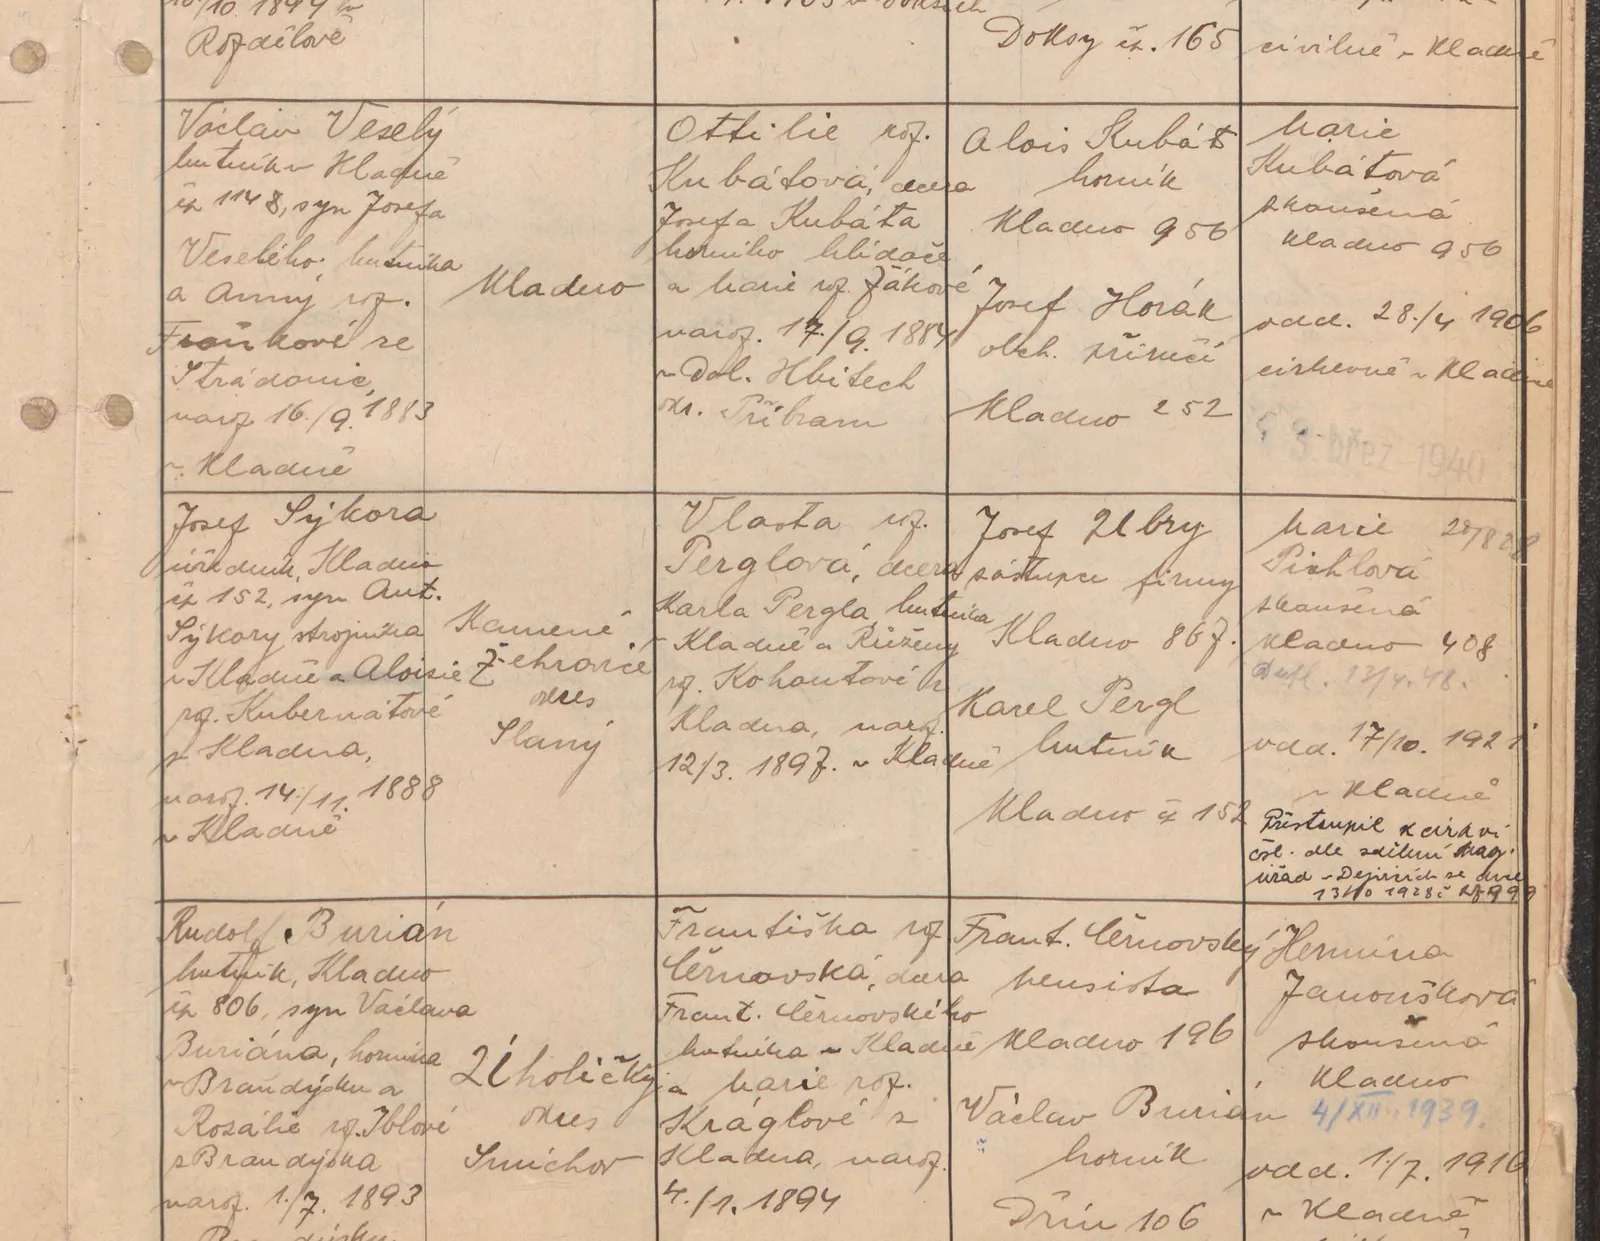 10/10. 1894 v
Rozdělově
Doksy čp. 165
civilně v Kladně
Václav Veselý
hutník v Kladně
čp 1148, syn Josefa
Veselého, hutníka
a Anny roz.
Fraňkové ze
Strádonic,
naroz 16./9. 1883
v Kladně
Kladno
Ottilie roz.
Kubátová, dcera
Josefa Kubáta
horního hlídače
a Marie roz Žákové
naroz. 17./9. 1884
v Dol. Hbitech
okr. Příbram
Alois Kubát
horník
Kladno 956
Josef Horák
obch. příručí
Kladno 252
Marie
Kubátová
zkoušená
Kladno 956
odd. 28./4 1906
církevně v Kladně
3. břez. 1940
Josef Sýkora
úředník, Kladno
čp 152, syn Ant.
Sýkory strojníka
v Kladně a Aloisie
roz. Kubernátové
z Kladna,
naroz. 14./11. 1888
v Kladně
Kamené
Žehrovice
okres
Slaný
Vlasta roz.
Perglová, dcera
Karla Pergla, hutníka
v Kladně a Růženy
roz. Kohoutové z
Kladna, naroz.
12/3. 1897. v Kladně
Josef Ulbry
zástupce firmy
Kladno 867.
Karel Pergl
hutník
Kladno čp 152
Marie
Pichlová
zkoušená
Kladno 408
Dupl. 13/4.48.
odd. 17/10. 1921
v Kladně
Přistoupil k církvi
čsl. dle sdělení
úřad v Dejvicích ze dne
13/10 1928 č
Rudolf Burián
hutník, Kladno
čp 806, syn Václava
Buriána, horníka
v Brandýsku a
Rozálie roz. Iblové
z Brandýska
naroz. 1./7. 1893
Úholičky
okres
Smíchov
Františka roz
Černovská, dcera
Frant. Černovského
hutníka v Kladně
a Marie roz.
Kráglové z
Kladna, naroz.
4./1. 1894
Frant. Černovský
pensista
Kladno 196
Václav Burián
horník
Dřín 106
Hermina
Janoušková
zkoušená
Kladno
4/XII. 1939.
odd. 1./7. 1916
v Kladně